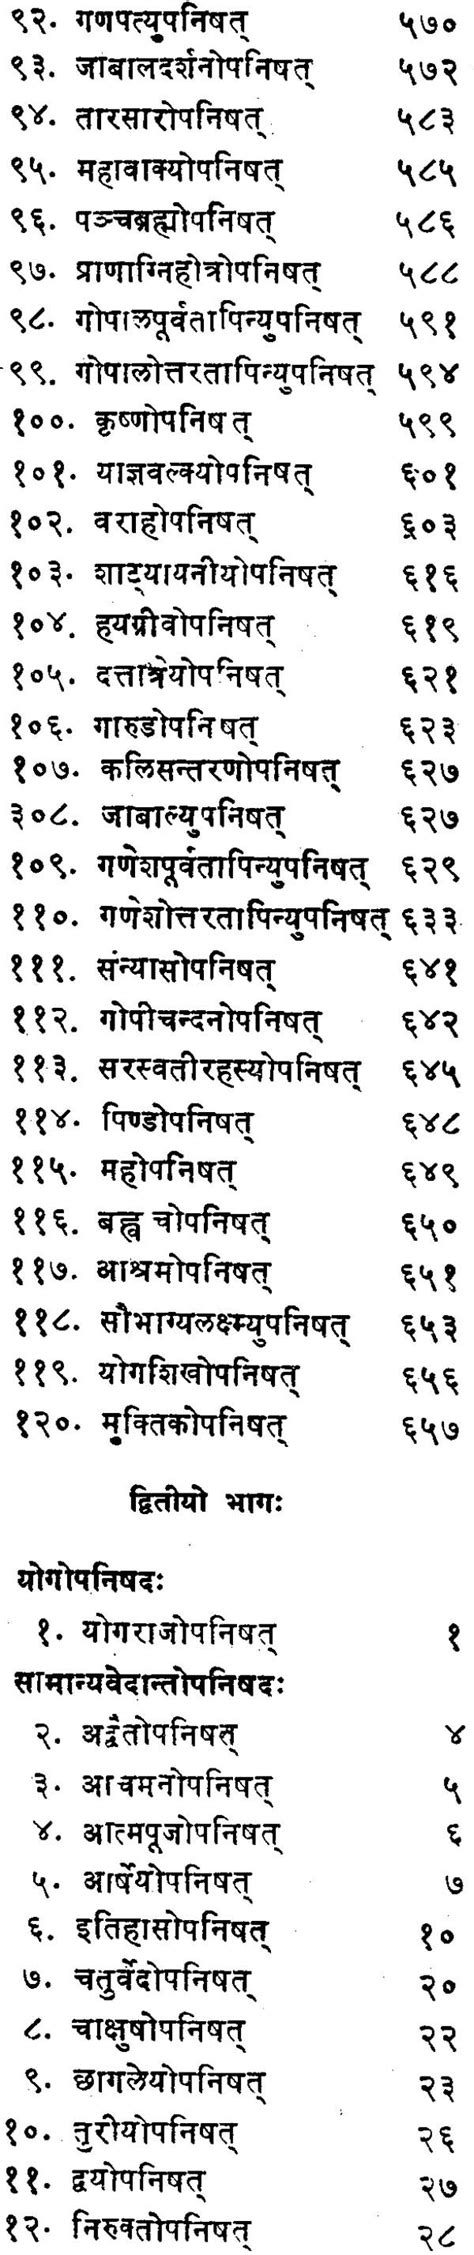 ९२. गणपत्युपनिषत् ५७०
९३. जाबालदर्शनोपनिषत् ५७२
९४. तारसारोपनिषत् ५८३
९५. महावाक्योपनिषत् ५८५
९६. पञ्चब्रह्मोपनिषत् ५८६
९७. प्राणाग्निहोत्रोपनिषत् ५८८
९८. गोपालपूर्वतापिन्युपनिषत् ५९१
९९. गोपालोत्तरतापिन्युपनिषत् ५९४
१००. कृष्णोपनिषत् ५९९
१०१. याज्ञवल्क्योपनिषत् ६०१
१०२. वराहोपनिषत् ६०३
१०३. शाट्यायनीयोपनिषत् ६१६
१०४. हयग्रीवोपनिषत् ६१९
१०५. दत्तात्रेयोपनिषत् ६२१
१०६. गारुडोपनिषत् ६२३
१०७. कलिसन्तरणोपनिषत् ६२७
३०८. जाबाल्युपनिषत् ६२७
१०९. गणेशपूर्वतापिन्युपनिषत् ६२९
११०. गणेशोत्तरतापिन्युपनिषत् ६३३
१११. संन्यासोपनिषत् ६४१
११२. गोपीचन्दनोपनिषत् ६४२
११३. सरस्वतीरहस्योपनिषत् ६४५
११४. पिण्डोपनिषत् ६४८
११५. महोपनिषत् ६४९
११६. बह्वृचोपनिषत् ६५०
११७. आश्रमोपनिषत् ६५१
११८. सौभाग्यलक्ष्म्युपनिषत् ६५३
११९. योगशिखोपनिषत् ६५६
१२०. मुक्तिकोपनिषत् ६५७
द्वितीयो भागः
योगोपनिषदः
१. योगराजोपनिषत् १
सामान्यवेदान्तोपनिषदः
२. अद्वैतोपनिषत् ४
३. आचमनोपनिषत् ५
४. आत्मपूजोपनिषत् ६
५. आर्षेयोपनिषत् ७
६. इतिहासोपनिषत् १०
७. चतुर्वेदोपनिषत् २०
८. चाक्षुषोपनिषत् २२
९. छागलेयोपनिषत् २३
१०. तुरीयोपनिषत् २६
११. द्वयोपनिषत् २७
१२. निरुक्तोपनिषत् २८